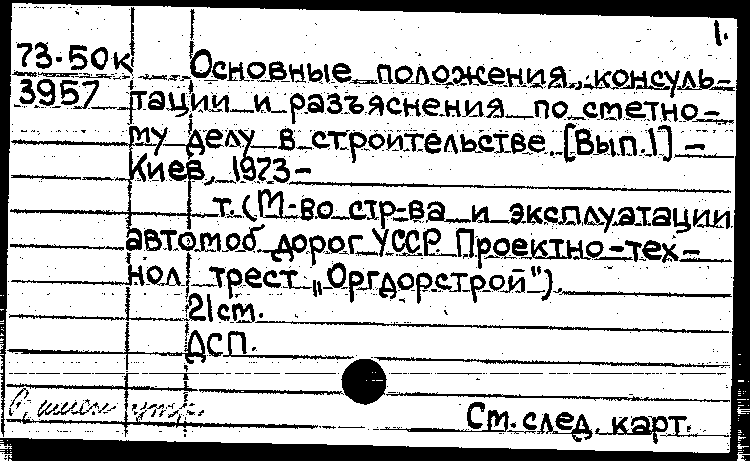 1.
73-50к Основные положения, консуль-
3957 тации и разъяснения по сметно-
му делу в строительстве. [Вып.1] –
Киев, 1973-
т. (М-во стр-ва и эксплуатации
автомоб дорог УССР. Проектно-тех-
нол трест „Оргдорстрой").
21см.
ДСП.
См. след. карт.